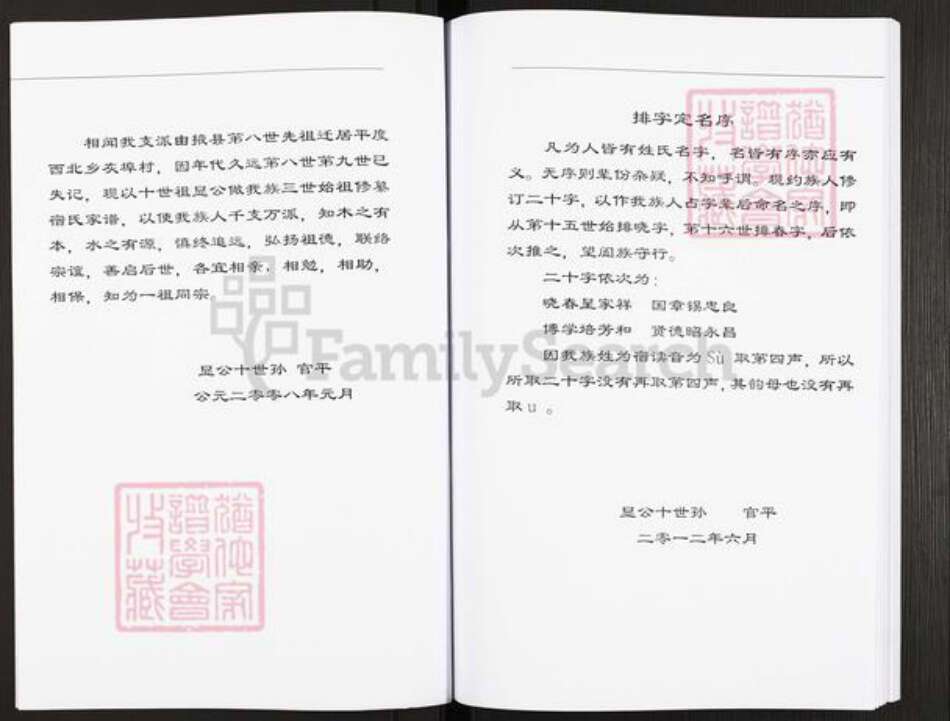 相闻我支派由掖县第八世先祖迁居平度
西北乡灰埠村，因年代久远第八世第九世已
失记，现以十世祖显公做我族三世始祖修纂
宿氏家谱，以使我族人千支万派，知木之有
本，水之有源，慎终追远，弘扬祖德，联络
宗谊，善启后世，各宜相亲，相勉，相助，
相保，知为一祖同宗。
显公十世孙 官平
公元二零零八年元月
猶他家
譜學會
收藏
排字定名序
凡为人皆有姓氏名字，名皆有序亦应有
义。无序则辈份杂疑，不知乎谓。现约族人修
订二十字，以作我族人占字辈后命名之序，即
从第十五世始排晓字，第十六世排春字，后依
次推之，望阖族守行。
二十字依次为：
晓春呈家祥 国章锡忠良
博学培芳和 贤德昭永昌
因我族姓为宿读音为Sù 取第四声，所以
所取二十字没有再取第四声，其韵母也没有再
取u 。
显公十世孙 官平
二零一二年六月
猶他家
譜學會
收藏
FamilySearch